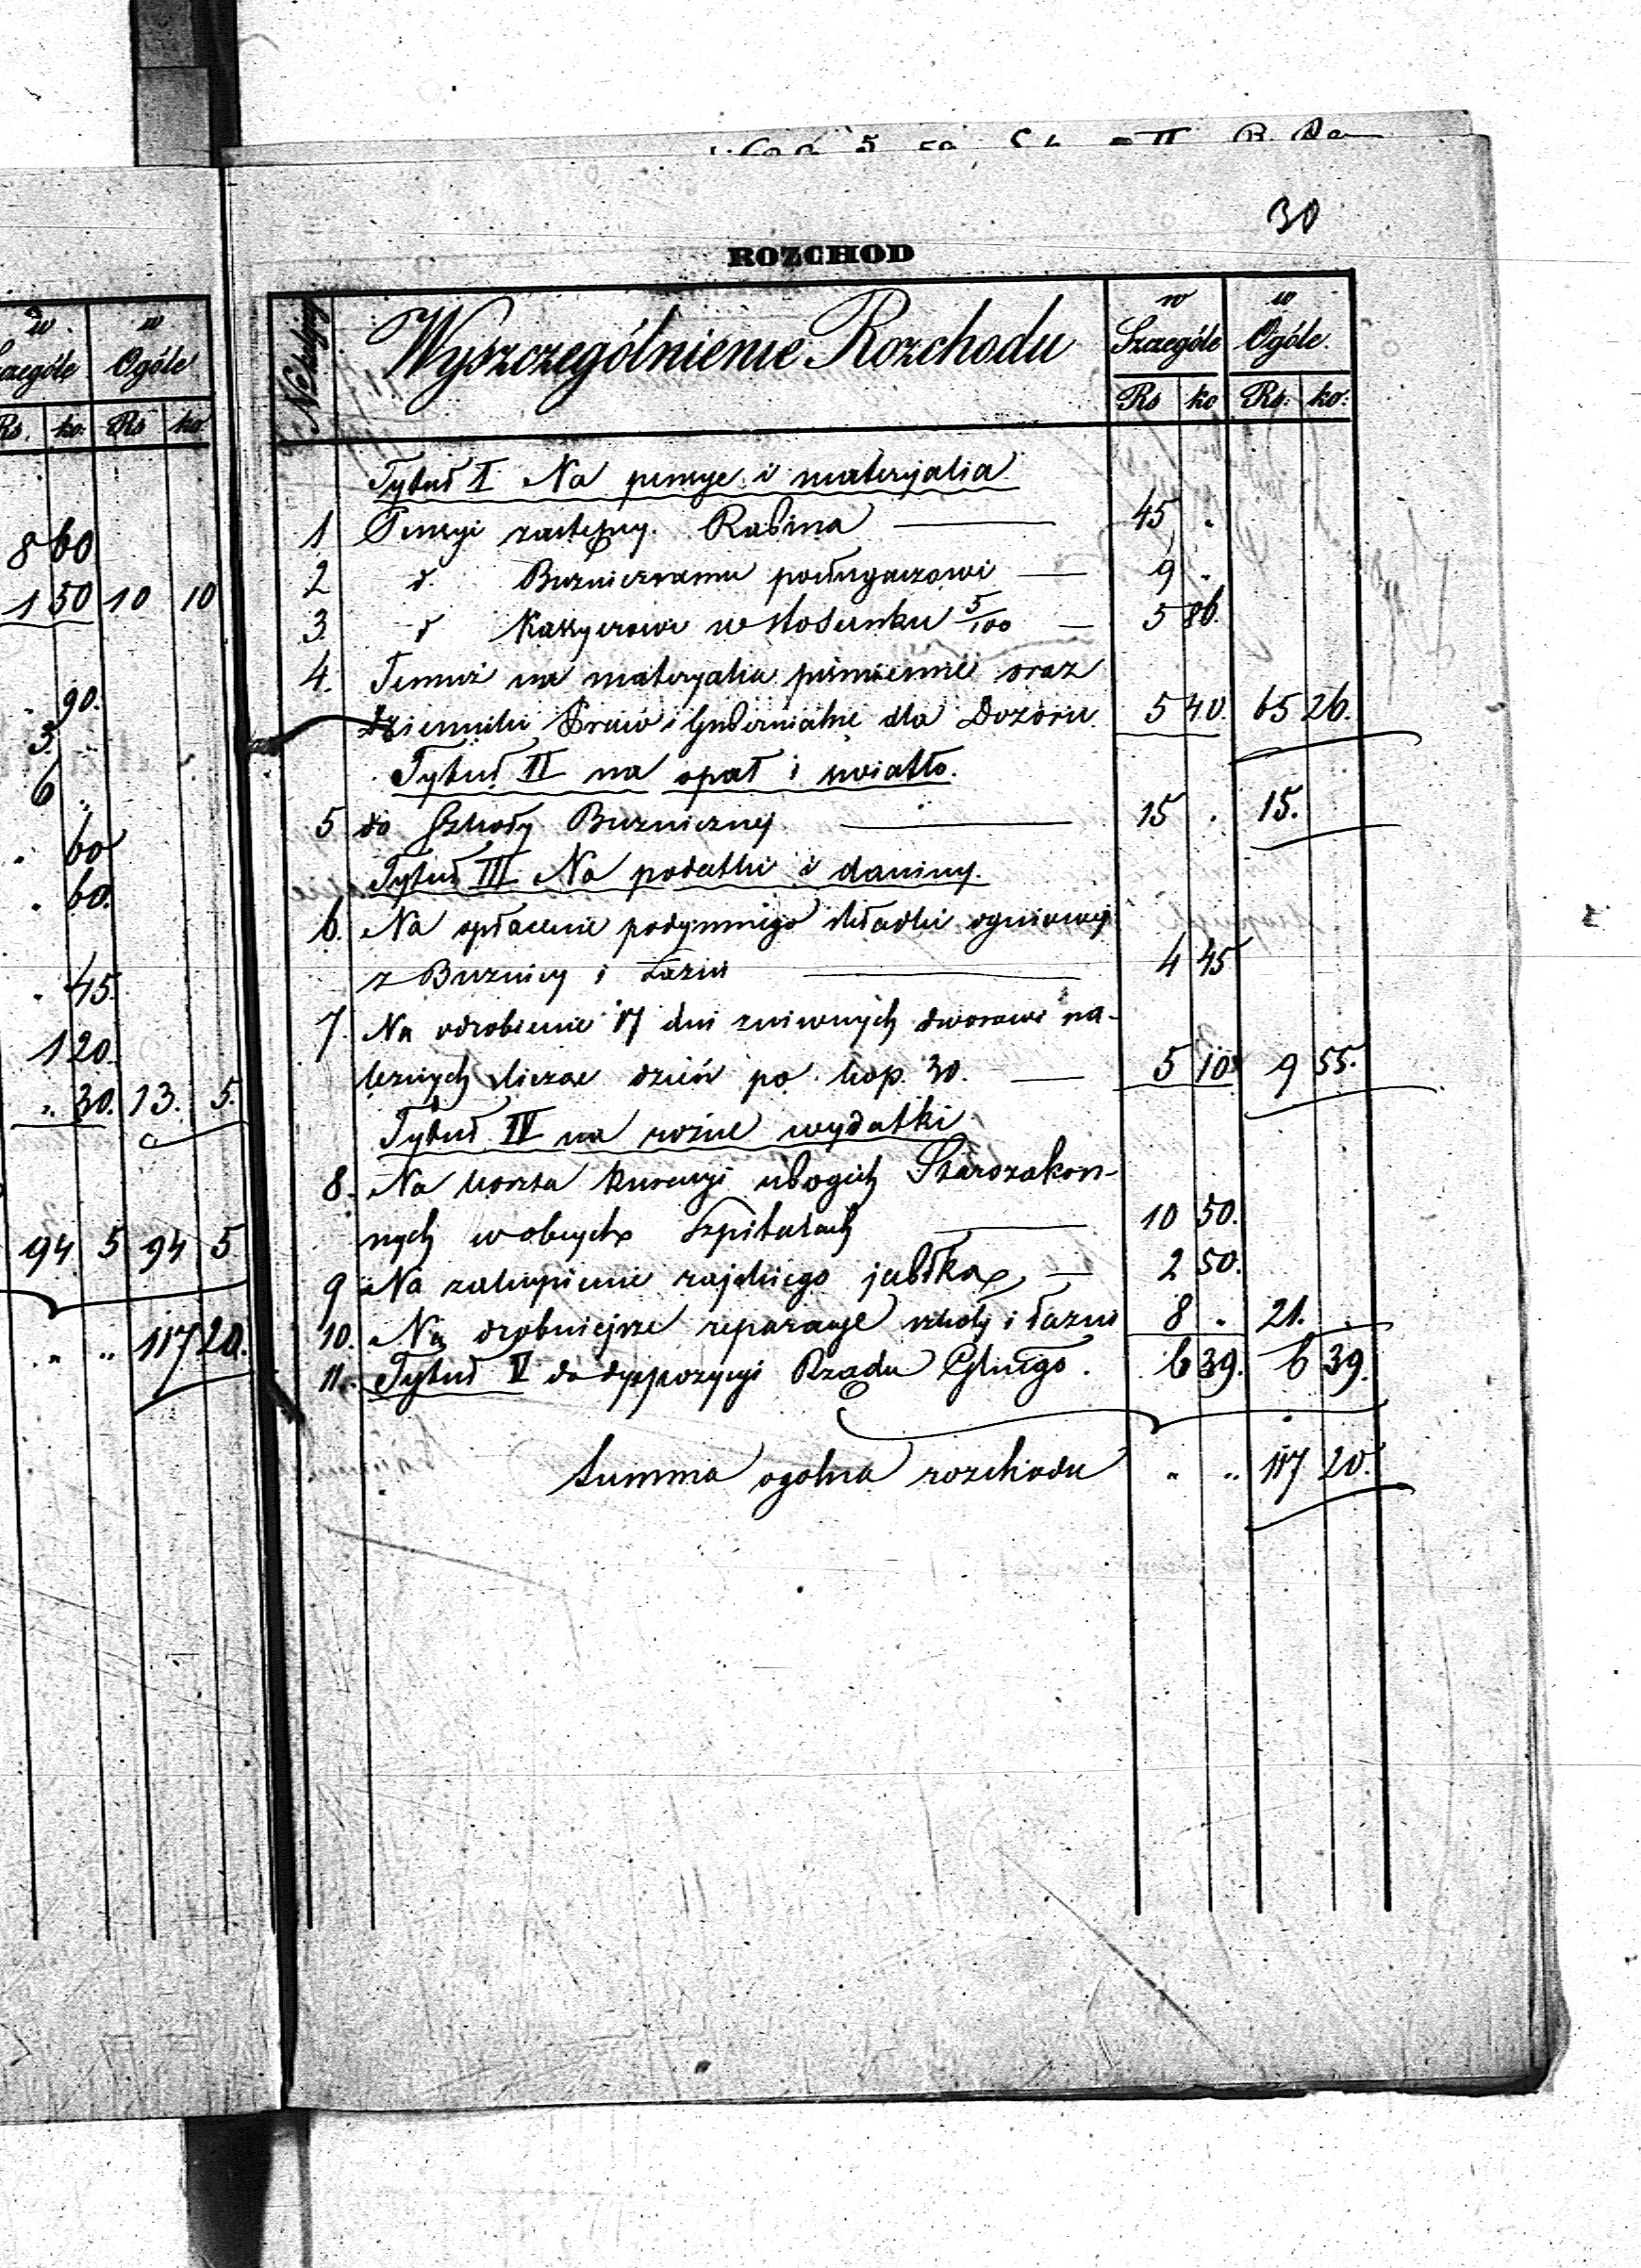 30
ROZCHOD
w Ogóle
Rs ko: Rs ko
8 60
1 50 10 10
90.
3. "
6 "
" 60
" 60.
" 45.
1 20.
" 30. 13. 5.
94 5 94 5
" " 117 20.
Wyszczególnienie Rozchodu
w Szczególe w Ogóle.
Rs ko Rs: ko:
Tytuł I Na pensye i materyalia
1 Pensyi zastępcy Rabina 45 "
2 d° Bużnicznemu posługaczowi 9 "
3. d° Kassyerowi w stosunku 5/100 5 86.
4. Temuż na materyalia piśmienne oraz
dzienniki Praw i Gubernialne dla Dozoru 5 40. 65 26.
Tytuł II na opał i swiatło.
5 do Szkoły Bużniczney 15 " 15.
Tytuł III Na podatki i daniny.
6. Na opłacenie podymnego składki ogniowej
z Bużnicy i Łazni 4 45
7. Na odrobienie 17 dni zniwnych dworowi na-
leznych licząc dzień po kop. 30. 5 10 9 55.
Tytuł IV na rożne wydatki
8. Na koszta kuracyi ubogich Starozakon-
nych w obcych Szpitalach 10 50.
9 Na zakupienie rajskiego jabłka 2 50.
10. Na drobniejsze reparacye szkoły i łazni 8 " 21. "
11. Tytuł V do dyspozycyi Rządu Gblnego. 6 39. 6 39.
Summa ogolna rozchodu " " 117 20.